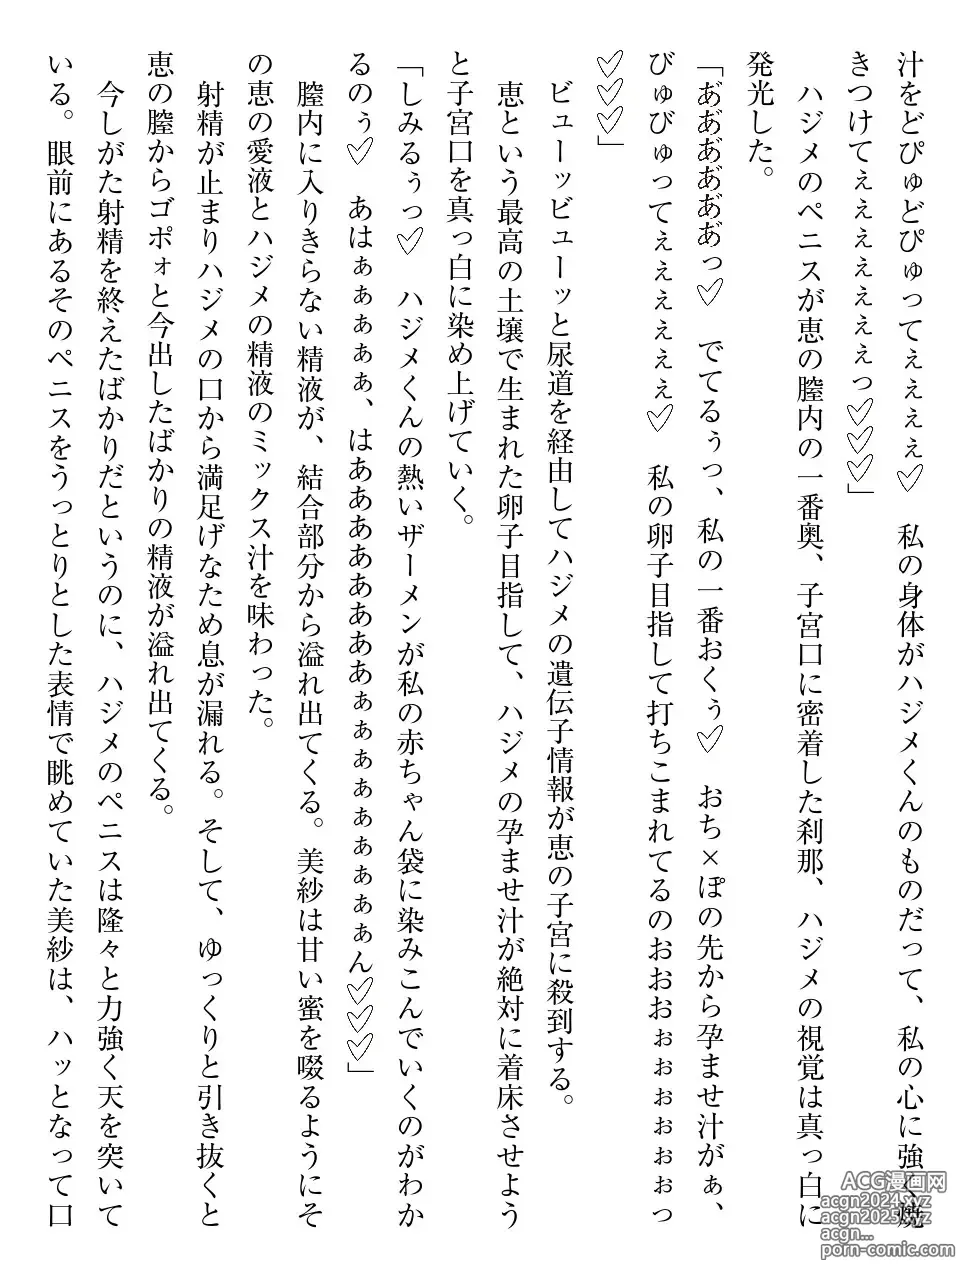 汁をどぴゅどぴゅってぇぇぇぇ♡　私の身体がハジメくんのものだって、私の心に強く焼
きつけてぇぇぇぇぇぇぇっ♡♡♡」
　ハジメのペニスが恵の膣内の一番奥、子宮口に密着した刹那、ハジメの視覚は真っ白に
発光した。
「あ゙あ゙あ゙あ゙あ゙っ♡　でてるぅっ、私の一番おくぅ♡　おち×ぽの先から孕ませ汁がぁ、
びゅびゅってぇぇぇぇぇ♡　私の卵子目指して打ちこまれてるのおおおぉぉぉぉぉぉっ
♡♡♡」
　ビューッビューッと尿道を経由してハジメの遺伝子情報が恵の子宮に殺到する。
　恵という最高の土壌で生まれた卵子目指して、ハジメの孕ませ汁が絶対に着床させよう
と子宮口を真っ白に染め上げていく。
「しみるぅっ♡　ハジメくんの熱いザーメンが私の赤ちゃん袋に染みこんでいくのがわか
るのぅ♡　あはぁぁぁぁぁ、はああああああああぁぁぁぁぁぁぁぁぁん♡♡♡」
　膣内に入りきらない精液が、結合部分から溢れ出てくる。美紗は甘い蜜を啜るようにそ
の恵の愛液とハジメの精液のミックス汁を味わった。
　射精が止まりハジメの口から満足げなため息が漏れる。そして、ゆっくりと引き抜くと
恵の膣からゴポォと今出したばかりの精液が溢れ出てくる。
　今しがた射精を終えたばかりだというのに、ハジメのペニスは隆々と力強く天を突いて
いる。眼前にあるそのペニスをうっとりとした表情で眺めていた美紗は、ハッとなって口
ACG漫画网
acgn2024.xyz
acgn2025.xyz
acgn...
porn-comic.com